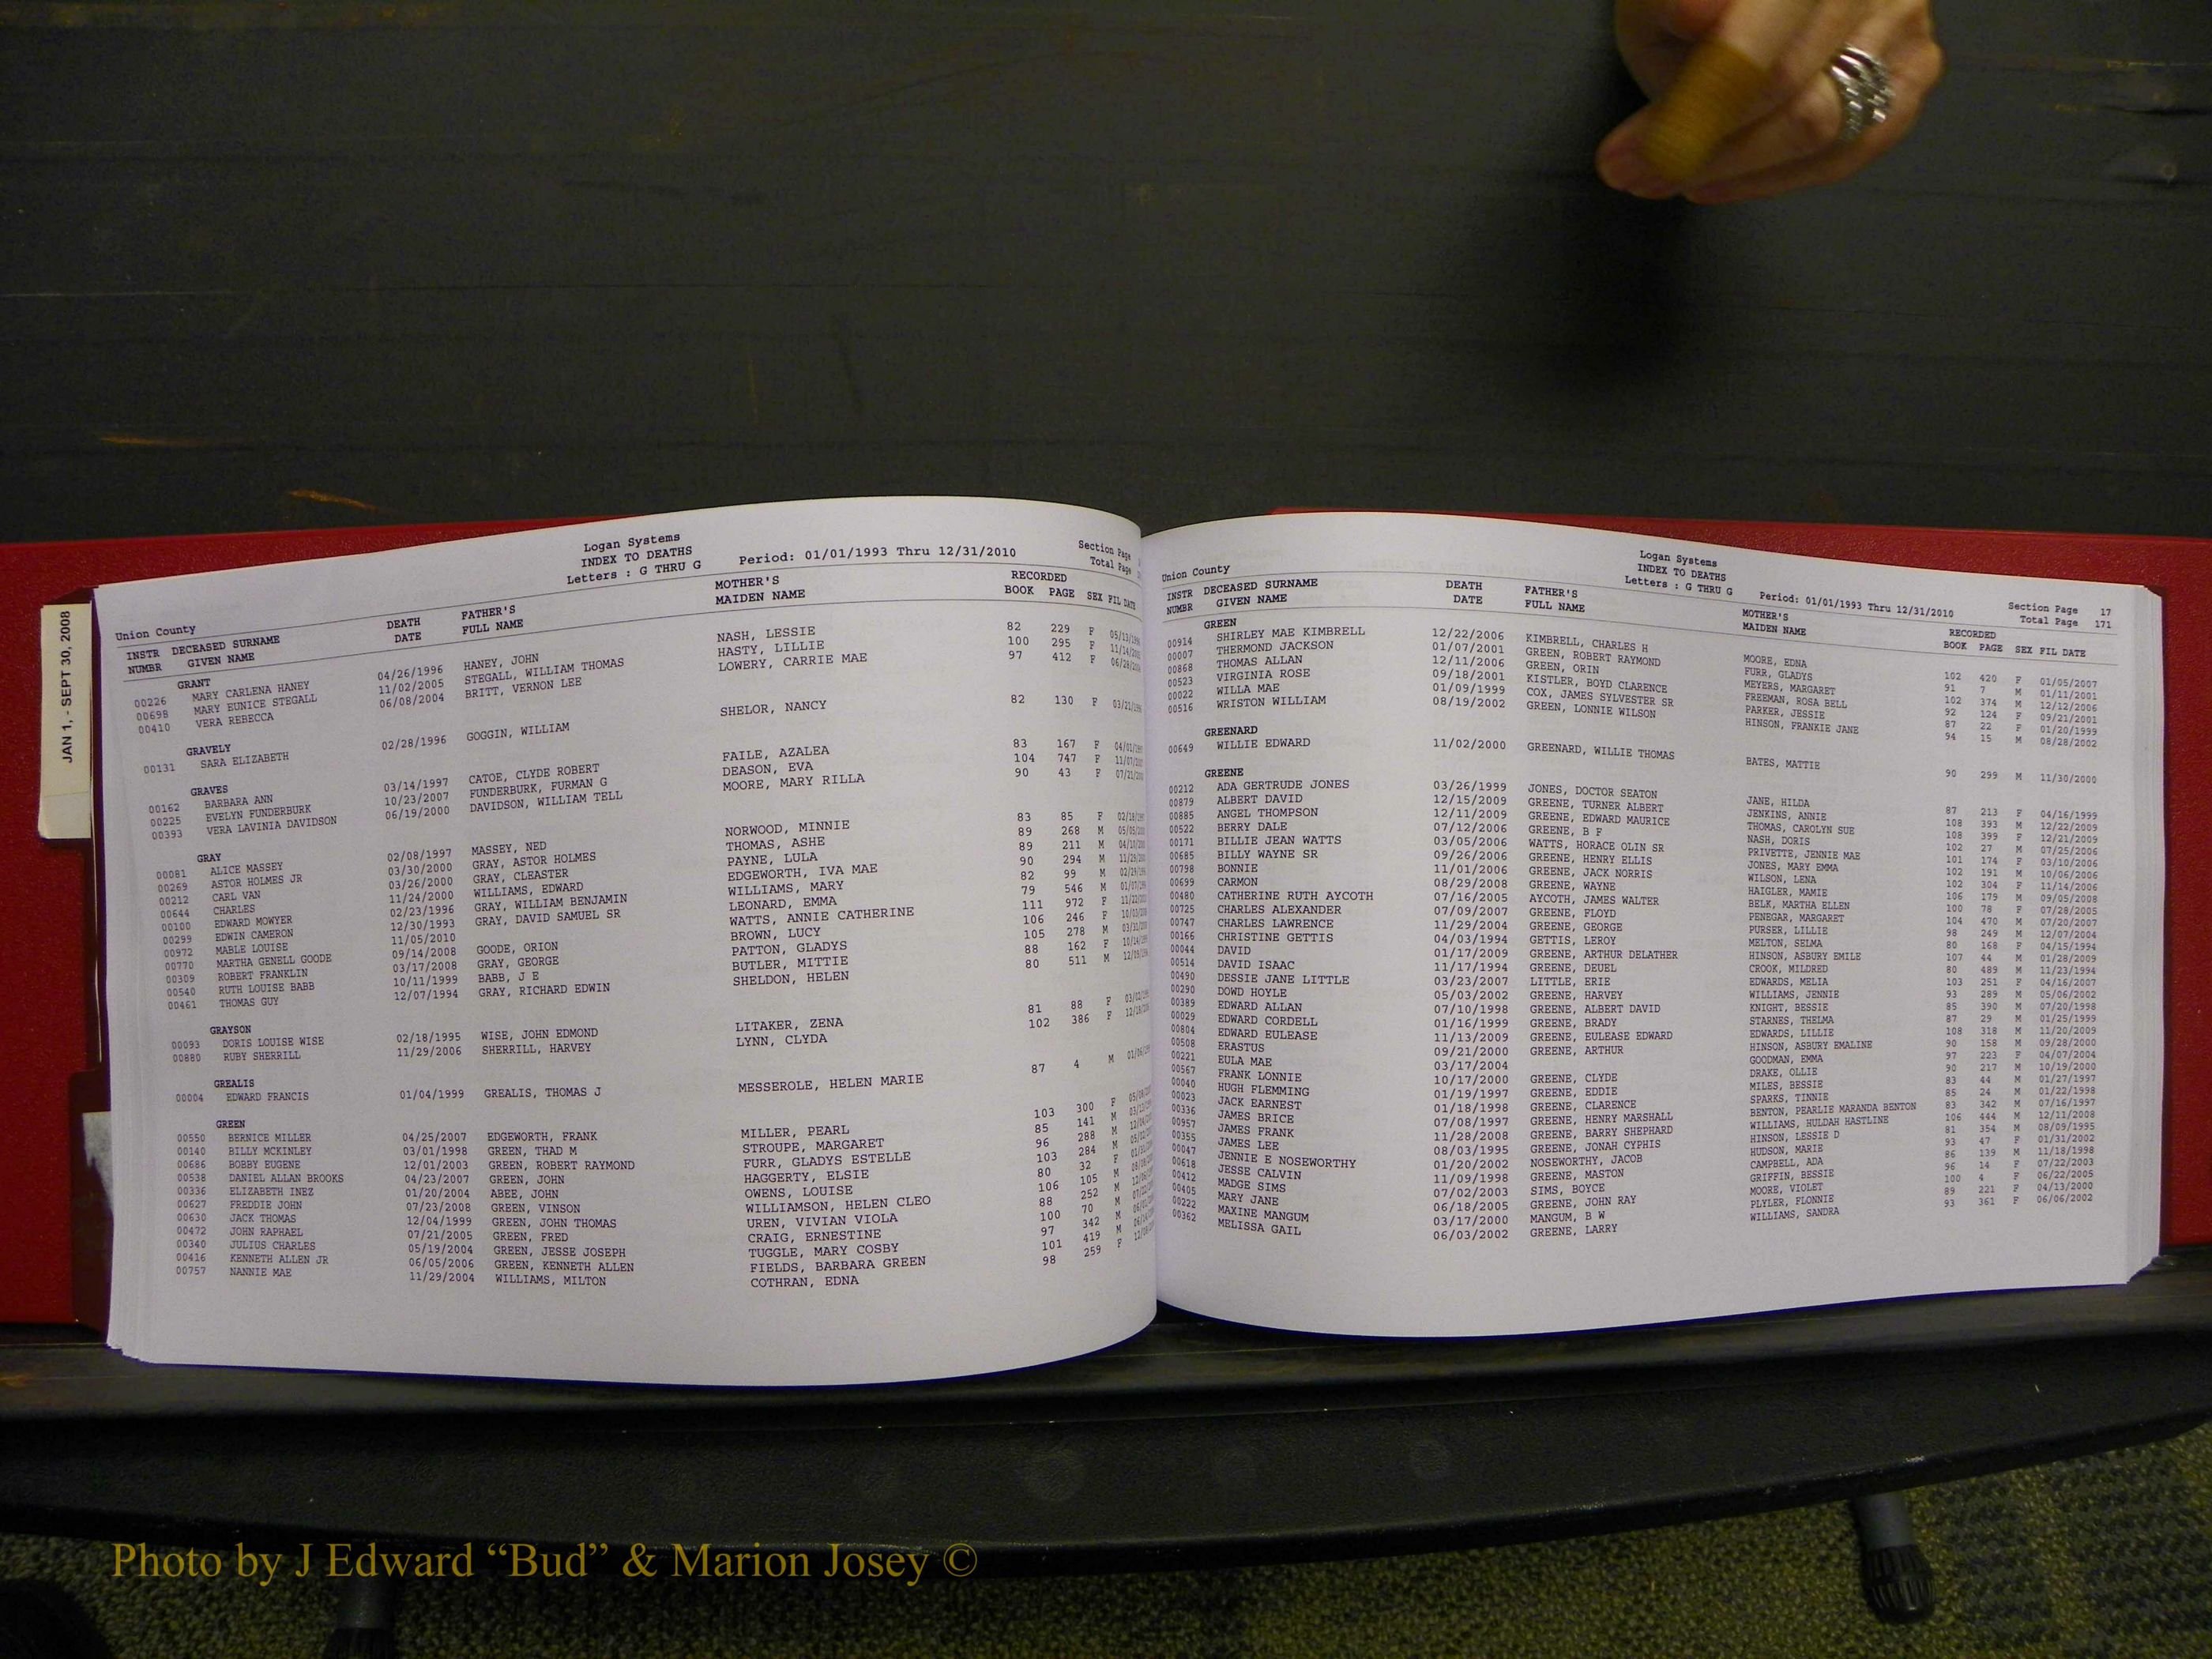 JAN 1, - SEPT 30, 2008
Logan Systems
INDEX TO DEATHS
Section Page
Letters : G THRU G Period: 01/01/1993 Thru 12/31/2010 Total Page
Union County
INSTR DECEASED SURNAME DEATH FATHER'S MOTHER'S RECORDED
NUMBR GIVEN NAME DATE FULL NAME MAIDEN NAME BOOK PAGE SEX FIL DATE
GRANT
00226 MARY CARLENA HANEY 04/26/1996 HANEY, JOHN NASH, LESSIE 82 229 F
00698 MARY EUNICE STEGALL 11/02/2005 STEGALL, WILLIAM THOMAS HASTY, LILLIE 100 295 F
00410 VERA REBECCA 06/08/2004 BRITT, VERNON LEE LOWERY, CARRIE MAE 97 412 F
GRAVELY
00131 SARA ELIZABETH 02/28/1996 GOGGIN, WILLIAM SHELOR, NANCY 82 130 F
GRAVES
00162 BARBARA ANN 03/14/1997 CATOE, CLYDE ROBERT FAILE, AZALEA 83 167 F
00225 EVELYN FUNDERBURK 10/23/2007 FUNDERBURK, FURMAN G DEASON, EVA 104 747 F
00393 VERA LAVINIA DAVIDSON 06/19/2000 DAVIDSON, WILLIAM TELL MOORE, MARY RILLA 90 43 F
GRAY
00081 ALICE MASSEY 02/08/1997 MASSEY, NED NORWOOD, MINNIE 83 85 F
00269 ASTOR HOLMES JR 03/30/2000 GRAY, ASTOR HOLMES THOMAS, ASHE 89 268 M
00212 CARL VAN 03/26/2000 GRAY, CLEASTER PAYNE, LULA 89 211 M
00644 CHARLES 11/24/2000 WILLIAMS, EDWARD EDGEWORTH, IVA MAE 90 294 M
00100 EDWARD MOWYER 02/23/1996 GRAY, WILLIAM BENJAMIN WILLIAMS, MARY 82 99 M
00299 EDWIN CAMERON 12/30/1993 GRAY, DAVID SAMUEL SR LEONARD, EMMA 79 546 M
00972 MABLE LOUISE 11/05/2010 WATTS, ANNIE CATHERINE 111 972 F
00770 MARTHA GENELL GOODE 09/14/2008 GOODE, ORION BROWN, LUCY 106 246 F
00309 ROBERT FRANKLIN 03/17/2008 GRAY, GEORGE PATTON, GLADYS 105 278 M
00540 RUTH LOUISE BABB 10/11/1999 BABB, J E BUTLER, MITTIE 88 162 F
00461 THOMAS GUY 12/07/1994 GRAY, RICHARD EDWIN SHELDON, HELEN 80 511 M
GRAYSON
00093 DORIS LOUISE WISE 02/18/1995 WISE, JOHN EDMOND LITAKER, ZENA 81 88 F
00880 RUBY SHERRILL 11/29/2006 SHERRILL, HARVEY LYNN, CLYDA 102 386 F
GREALIS
00004 EDWARD FRANCIS 01/04/1999 GREALIS, THOMAS J MESSEROLE, HELEN MARIE 87 4 M
GREEN
00550 BERNICE MILLER 04/25/2007 EDGEWORTH, FRANK MILLER, PEARL 103 300 F
00140 BILLY MCKINLEY 03/01/1998 GREEN, THAD M STROUPE, MARGARET 85 141 M
00686 BOBBY EUGENE 12/01/2003 GREEN, ROBERT RAYMOND FURR, GLADYS ESTELLE 96 288 M
00538 DANIEL ALLAN BROOKS 04/23/2007 GREEN, JOHN HAGGERTY, ELSIE 103 284 M
00336 ELIZABETH INEZ 01/20/2004 ABEE, JOHN OWENS, LOUISE 80 32 F
00627 FREDDIE JOHN 07/23/2008 GREEN, VINSON WILLIAMSON, HELEN CLEO 106 105 M
00630 JACK THOMAS 12/04/1999 GREEN, JOHN THOMAS UREN, VIVIAN VIOLA 88 252 M
00472 JOHN RAPHAEL 07/21/2005 GREEN, FRED CRAIG, ERNESTINE 100 70 M
00340 JULIUS CHARLES 05/19/2004 GREEN, JESSE JOSEPH TUGGLE, MARY COSBY 97 342 M
00416 KENNETH ALLEN JR 06/05/2006 GREEN, KENNETH ALLEN FIELDS, BARBARA GREEN 101 419 M
00757 NANNIE MAE 11/29/2004 WILLIAMS, MILTON COTHRAN, EDNA 98 259 F
Logan Systems
INDEX TO DEATHS
Section Page 17
Union County Letters : G THRU G Period: 01/01/1993 Thru 12/31/2010 Total Page 171
INSTR DECEASED SURNAME DEATH FATHER'S MOTHER'S RECORDED
NUMBR GIVEN NAME DATE FULL NAME MAIDEN NAME BOOK PAGE SEX FIL DATE
GREEN
00914 SHIRLEY MAE KIMBRELL 12/22/2006 KIMBRELL, CHARLES H MOORE, EDNA 102 420 F 01/05/2007
00007 THERMOND JACKSON 01/07/2001 GREEN, ROBERT RAYMOND FURR, GLADYS 91 7 M 01/11/2001
00868 THOMAS ALLAN 12/11/2006 GREEN, ORIN MEYERS, MARGARET 102 374 M 12/12/2006
00523 VIRGINIA ROSE 09/18/2001 KISTLER, BOYD CLARENCE FREEMAN, ROSA BELL 92 124 F 09/21/2001
00022 WILLA MAE 01/09/1999 COX, JAMES SYLVESTER SR PARKER, JESSIE 87 22 F 01/20/1999
00516 WRISTON WILLIAM 08/19/2002 GREEN, LONNIE WILSON HINSON, FRANKIE JANE 94 15 M 08/28/2002
GREENARD
00649 WILLIE EDWARD 11/02/2000 GREENARD, WILLIE THOMAS BATES, MATTIE 90 299 M 11/30/2000
GREENE
00212 ADA GERTRUDE JONES 03/26/1999 JONES, DOCTOR SEATON JANE, HILDA 87 213 F 04/16/1999
00879 ALBERT DAVID 12/15/2009 GREENE, TURNER ALBERT JENKINS, ANNIE 108 393 M 12/22/2009
00885 ANGEL THOMPSON 12/11/2009 GREENE, EDWARD MAURICE THOMAS, CAROLYN SUE 108 399 F 12/21/2009
00522 BERRY DALE 07/12/2006 GREENE, B F NASH, DORIS 102 27 M 07/25/2006
00171 BILLIE JEAN WATTS 03/05/2006 WATTS, HORACE OLIN SR PRIVETTE, JENNIE MAE 101 174 F 03/10/2006
00685 BILLY WAYNE SR 09/26/2006 GREENE, HENRY ELLIS JONES, MARY EMMA 102 191 M 10/06/2006
00798 BONNIE 11/01/2006 GREENE, JACK NORRIS WILSON, LENA 102 304 F 11/14/2006
00699 CARMON 08/29/2008 GREENE, WAYNE HAIGLER, MAMIE 106 179 M 09/05/2008
00480 CATHERINE RUTH AYCOTH 07/16/2005 AYCOTH, JAMES WALTER BELK, MARTHA ELLEN 100 78 F 07/28/2005
00725 CHARLES ALEXANDER 07/09/2007 GREENE, FLOYD PENEGAR, MARGARET 104 470 M 07/20/2007
00747 CHARLES LAWRENCE 11/29/2004 GREENE, GEORGE PURSER, LILLIE 98 249 M 12/07/2004
00166 CHRISTINE GETTIS 04/03/1994 GETTIS, LEROY MELTON, SELMA 80 168 F 04/15/1994
00044 DAVID 01/17/2009 GREENE, ARTHUR DELATHER HINSON, ASBURY EMILE 107 44 M 01/28/2009
00514 DAVID ISAAC 11/17/1994 GREENE, DEUEL CROOK, MILDRED 80 489 M 11/23/1994
00490 DESSIE JANE LITTLE 03/23/2007 LITTLE, ERIE EDWARDS, MELIA 103 251 F 04/16/2007
00290 DOWD HOYLE 05/03/2002 GREENE, HARVEY WILLIAMS, JENNIE 93 289 M 05/06/2002
00389 EDWARD ALLAN 07/10/1998 GREENE, ALBERT DAVID KNIGHT, BESSIE 85 390 M 07/20/1998
00029 EDWARD CORDELL 01/16/1999 GREENE, BRADY STARNES, THELMA 87 29 M 01/25/1999
00804 EDWARD EULEASE 11/13/2009 GREENE, EULEASE EDWARD EDWARDS, LILLIE 108 318 M 11/20/2009
00508 ERASTUS 09/21/2000 GREENE, ARTHUR HINSON, ASBURY EMALINE 90 158 M 09/28/2000
00221 EULA MAE 03/17/2004 GOODMAN, EMMA 97 223 F 04/07/2004
00567 FRANK LONNIE 10/17/2000 GREENE, CLYDE DRAKE, OLLIE 90 217 M 10/19/2000
00040 HUGH FLEMMING 01/19/1997 GREENE, EDDIE MILES, BESSIE 83 44 M 01/27/1997
00023 JACK EARNEST 01/18/1998 GREENE, CLARENCE SPARKS, TINNIE 85 24 M 01/22/1998
00336 JAMES BRICE 07/08/1997 GREENE, HENRY MARSHALL BENTON, PEARLIE MARANDA BENTON 83 342 M 07/16/1997
00957 JAMES FRANK 11/28/2008 GREENE, BARRY SHEPHARD WILLIAMS, HULDAH HASTLINE 106 444 M 12/11/2008
00355 JAMES LEE 08/03/1995 GREENE, JONAH CYPHIS HINSON, LESSIE D 81 354 M 08/09/1995
00047 JENNIE E NOSEWORTHY 01/20/2002 NOSEWORTHY, JACOB HUDSON, MARIE 93 47 F 01/31/2002
00618 JESSE CALVIN 11/09/1998 GREENE, MASTON CAMPBELL, ADA 86 139 M 11/18/1998
00412 MADGE SIMS 07/02/2003 SIMS, BOYCE GRIFFIN, BESSIE 96 14 F 07/22/2003
00405 MARY JANE 06/18/2005 GREENE, JOHN RAY MOORE, VIOLET 100 4 F 06/22/2005
00222 MAXINE MANGUM 03/17/2000 MANGUM, B W PLYLER, FLONNIE 89 221 F 04/13/2000
00362 MELISSA GAIL 06/03/2002 GREENE, LARRY WILLIAMS, SANDRA 93 361 F 06/06/2002
Photo by J Edward “Bud” & Marion Josey ©